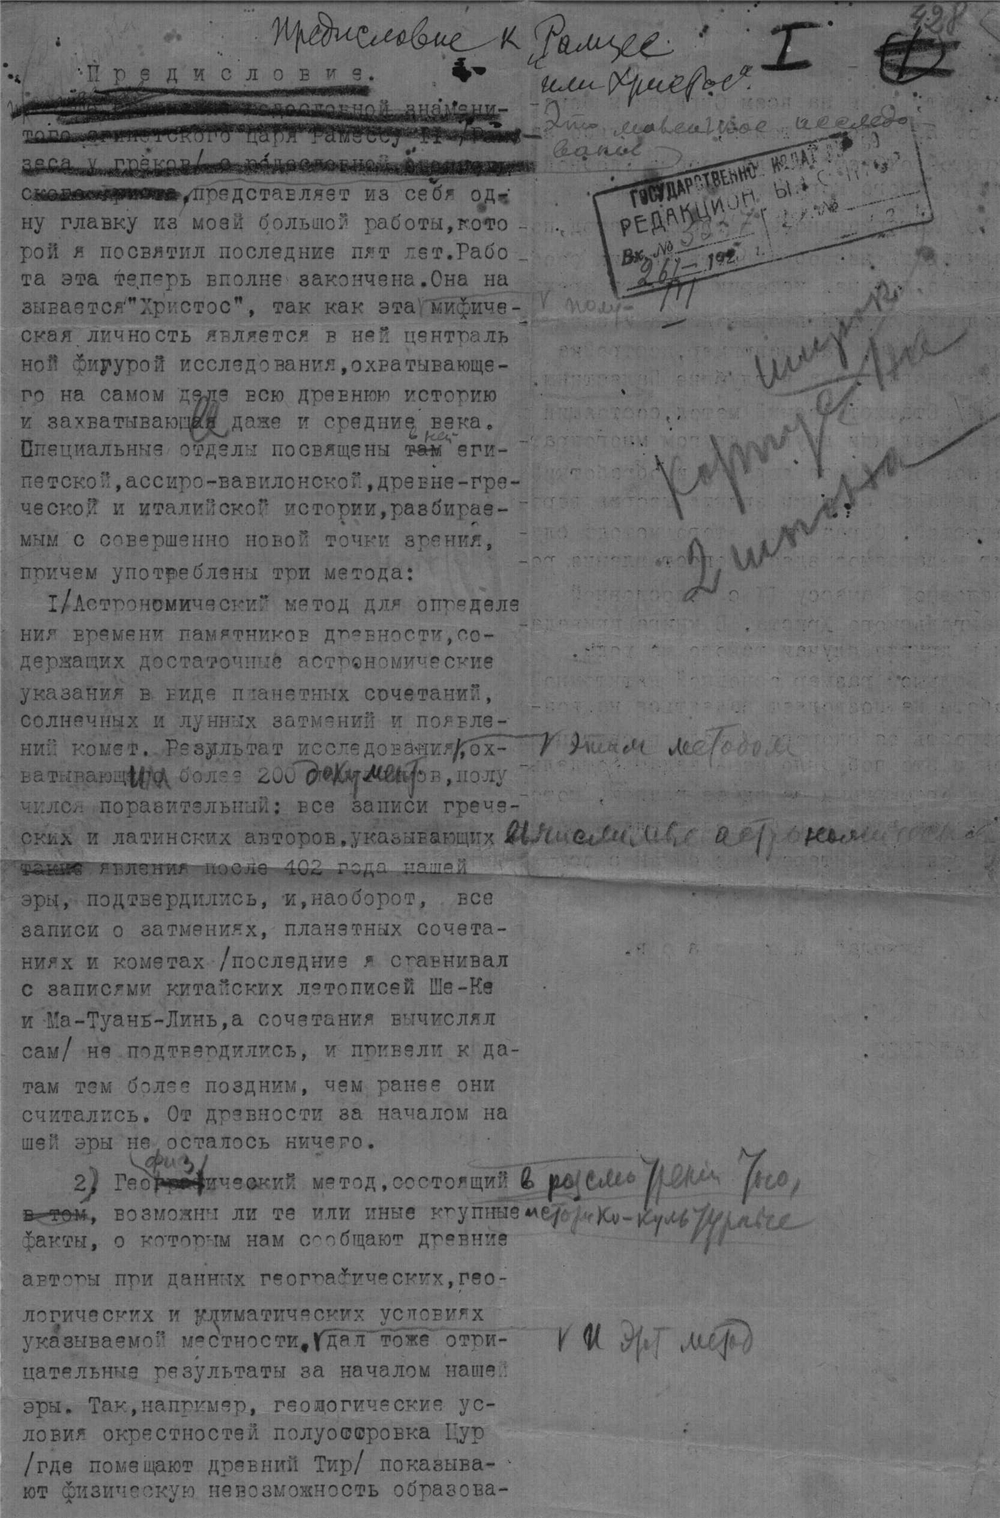 428
Предисловие к „Рамзес
или Христос"
I
Предисловие.
родословной знамени-
того египетского царя Рамессу II /Рам-
зеса у греков/ о родословной
ского Христа, представляет из себя од-
Это маленькое исследо
вание
ну главку из моей большой работы, кото
рой я посвятил последние пят лет. Рабо
та эта теперь вполне закончена. Она на
зывается "Христос", так как эта мифиче-
V полу-
ская личность является в ней централь
ной фигурой исследования, охватывающе-
го на самом деле всю древнюю историю
и захватывающая даже и средние века.
Специальные отделы посвящены там в ней еги-
петской, ассиро-вавилонской, древне-гре-
ческой и италийской истории, разбирае-
мым с совершенно новой точки зрения,
причем употреблены три метода:
ГОСУДАРСТВЕННОЕ ИЗДАТ
РЕДАКЦИОН
Вх. №
корпус
2 шпона
I/Астрономический метод для определе
ния времени памятников древности, со-
держащих достаточные астрономические
указания в виде планетных сочетаний,
солнечных и лунных затмений и появле-
ний комет. Результат исследования, ох-
V этим методом
ватывающий более 200 документов, полу
чился поразительный: все записи грече-
ских и латинских авторов, указывающих вычислимые астрономические
такие явления после 402 года нашей
эры, подтвердились, и, наоборот, все
записи о затмениях, планетных сочета-
ниях и кометах /последние я сравнивал
с записями китайских летописей Ше-Ке
и Ма-Туань-Линь, а сочетания вычислял
сам/ не подтвердились, и привели к да-
там тем более поздним, чем ранее они
считались. От древности за началом на
шей эры не осталось ничего.
2) Геофизический метод, состоящий в рассмотрении того,
в том, возможны ли те или иные крупные историко-культурные
факты, о которым нам сообщают древние
авторы при данных географических, гео-
логических и климатических условиях
указываемой местности. V дал тоже отри-
V И этот метод
цательные результаты за началом нашей
эры. Так, например, геологические ус-
ловия окрестностей полуостровка Цур
/где помещают древний Тир/ показыва-
ют физическую невозможность образова-